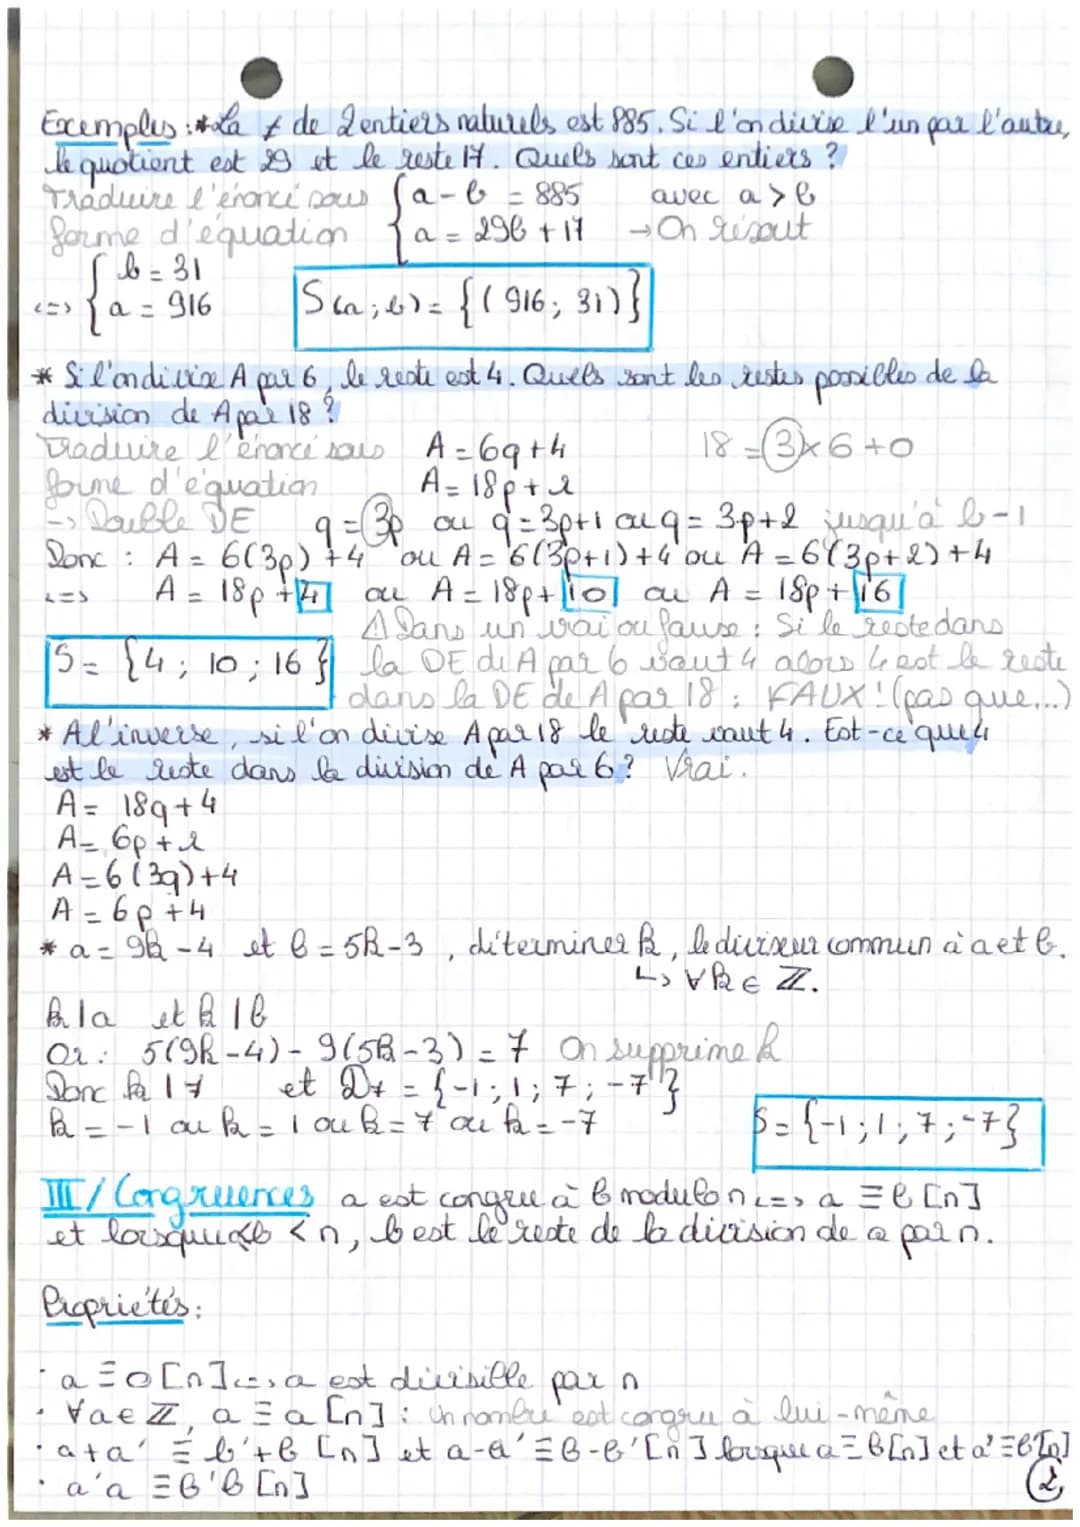 Exemples : * La ≠ de 2 entiers naturels est 885. Si l'on divise l'un par l'autre,
le quotient est 29 et le reste 17. Quels sont ces entiers ?
Traduire l'énoncé sous { a - b = 885 avec a > b
forme d'équation { a = 29b + 17 → On résout
<=> { b = 31
{ a = 916 S(a;b) = {(916; 31)}
* Si l'on divise A par 6, le reste est 4. Quels sont les restes possibles de la
division de A par 18 ?
Traduire l'énoncé sous A = 6q + 4 18 = 3 x 6 + 0
forme d'équation A = 18p + r
-> Double DE q = 3p ou q = 3p+1 ou q = 3p+2 jusqu'à b-1
Donc : A = 6(3p) + 4 ou A = 6(3p+1) + 4 ou A = 6(3p+2) + 4
<=> A = 18p + 4 ou A = 18p + 10 ou A = 18p + 16
⚠ Dans un vrai ou fausse : Si le reste dans
S = {4 ; 10 ; 16} la DE de A par 6 vaut 4 alors 4 est le reste
dans la DE de A par 18 : FAUX ! (pas que...)
* A l'inverse, si l'on divise A par 18 le reste vaut 4. Est-ce que 4
est le reste dans la division de A par 6 ? Vrai.
A = 18q + 4
A = 6p + r
A = 6(3q) + 4
A = 6p + 4
* a = 9k - 4 et b = 5k - 3, déterminer k, le diviseur commun à a et b.
↳ ∀k ∈ ℤ.
k | a et k | b
Or : 5(9k-4) - 9(5k-3) = 7 On supprime k
Donc k | 7 et D7 = {-1; 1; 7; -7}
k = -1 ou k = 1 ou k = 7 ou k = -7 S = {-1; 1; 7; -7}
III / Congruences a est congru à b modulo n <=> a ≡ b [n]
et lorsque b < n, b est le reste de la division de a par n.
Propriétés :
· a ≡ 0 [n] <=> a est divisible par n
· ∀a ∈ ℤ, a ≡ a [n] : Un nombre est congru à lui-même
· a+a' ≡ b'+b [n] et a-a' ≡ b-b' [n] lorsque a ≡ b [n] et a' ≡ b' [n]
· a'a ≡ b'b [n]
2